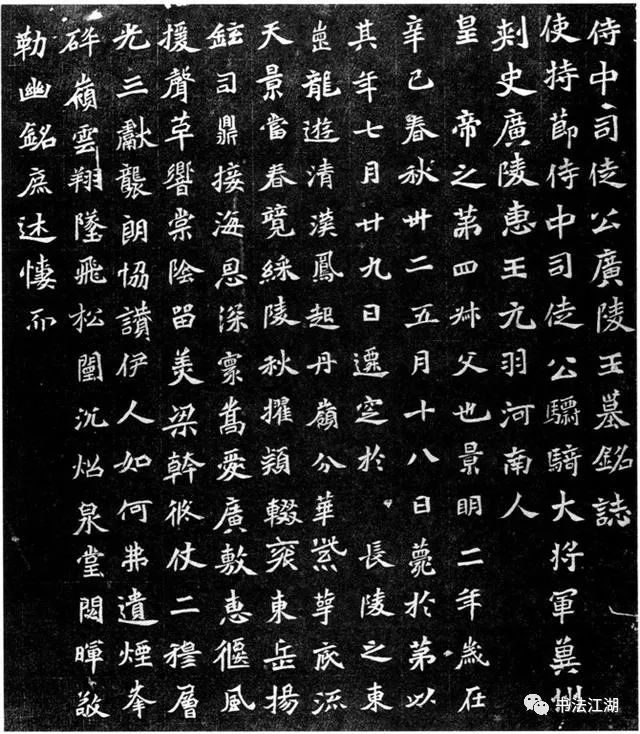 侍中司徒公廣陵王墓銘誌
使持節侍中司徒公驃騎大將軍冀州
刺史廣陵惠王元羽河南人
皇帝之第四叔父也景明二年歲在
辛巳春秋卅二五月十八日薨於第以
其年七月廿九日遷窆於長陵之東
崗龍遊清漢鳳起丹嶺分華紫萼底流
天景當春競綵陵秋擢穎輟袞東岳揚
鉉司鼎接海恩深寰嵩愛廣敷惠偃風
援聲草響棠陰留美梁幹攸仗二穆層
光三獻襲朗協讚伊人如何弗遺煙峯
碎嶺雲翔墜飛松闈沉炤泉堂閟暉敬
勒幽銘庶述悽而
书法江湖